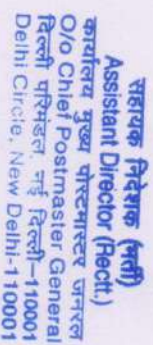 सहायक निदेशक (भर्ती)
Assistant Director (Rectt.)
कार्यालय मुख्य पोस्टमास्टर जनरल
O/o Chief Postmaster General
दिल्ली परिमंडल, नई दिल्ली–110001
Delhi Circle, New Delhi-110001